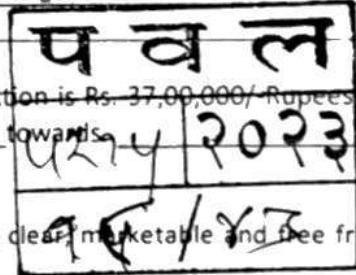 प व ल
tion is Rs. 37,00,000/-Rupees
towards
२०२३
clear, marketable and free fr